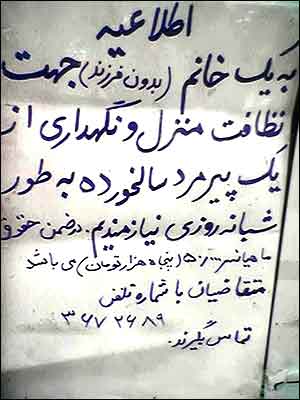 اطلاعیه
به یک خانم (بدون فرزند) جهت
نظافت منزل و نگهداری از
یک پیرمرد سالخورده به طور
شبانه روزی نیازمندیم. در ضمن حقوق
ماهیانه ۵۰/۰۰۰ (پنجاه هزار تومان) می باشد
متقاضیان با شماره تلفن
۳۶۷۲۶۸۹
تماس بگیرند.